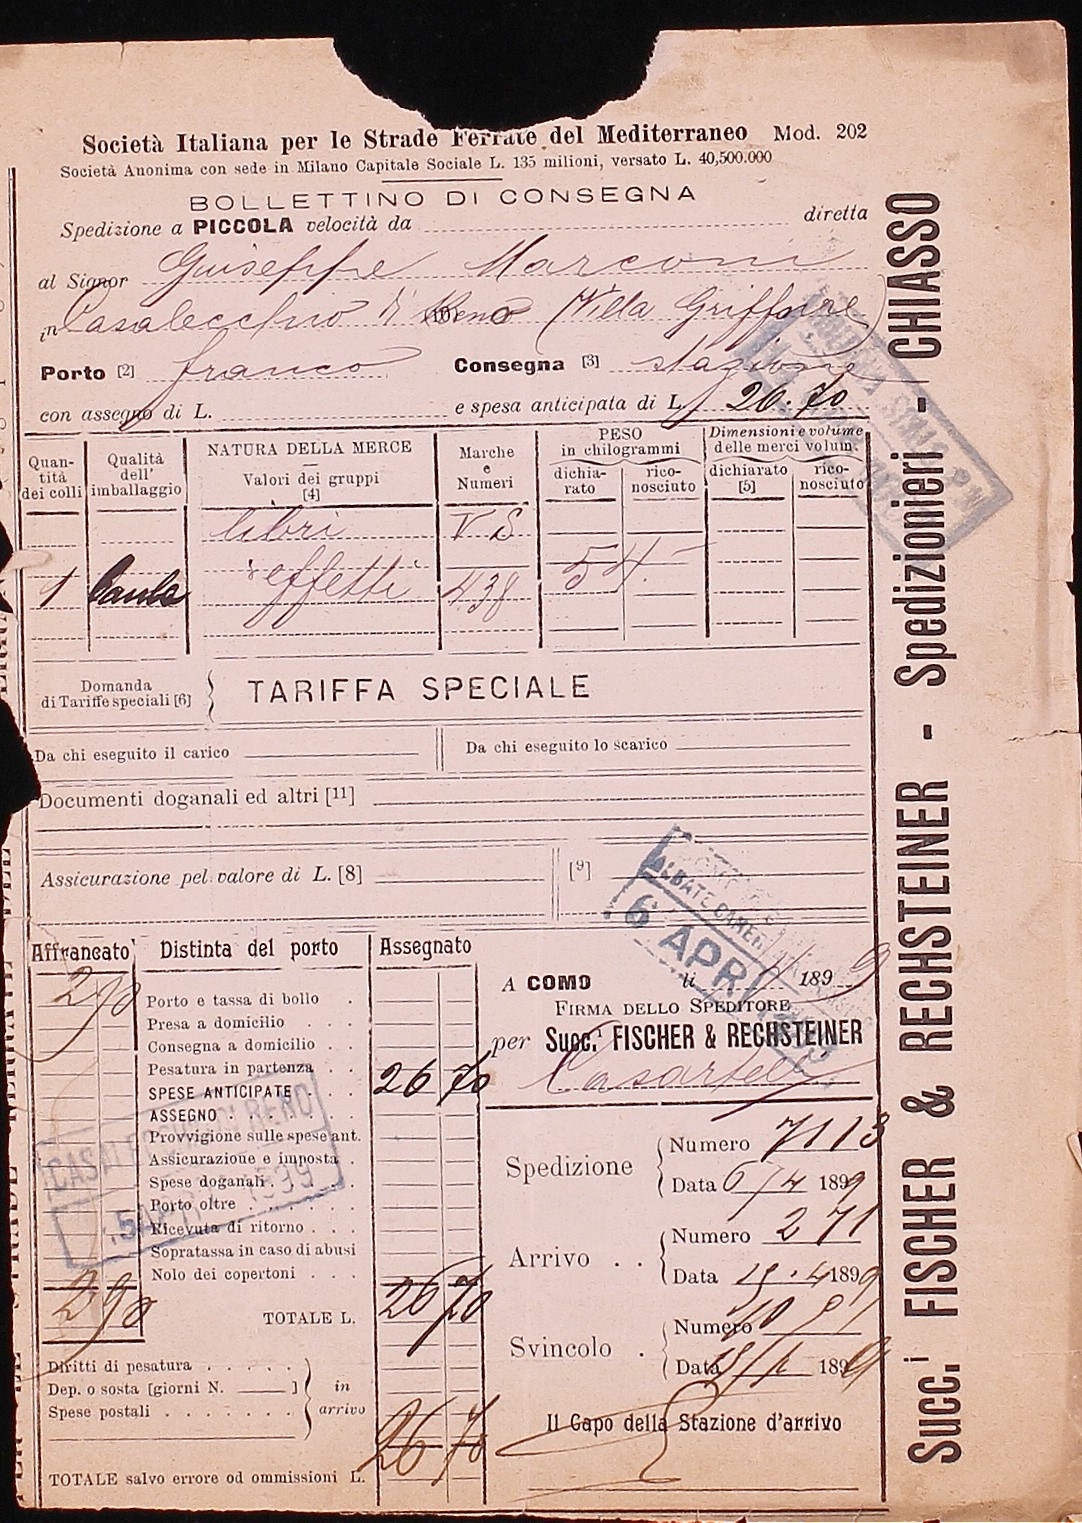 Società Italiana per le Strade Ferrate del Mediterraneo Mod. 202
Società Anonima con sede in Milano Capitale Sociale L. 135 milioni, versato L. 40,500.000
BOLLETTINO DI CONSEGNA
Spedizione a PICCOLA velocità da diretta
al Signor Giuseppe Marconi
in Casalecchio di Reno (Villa Griffone)
Porto [2] franco Consegna [3] stazione
con assegno di L. e spesa anticipata di L. 26.70
Quantità dei colli
Qualità dell' imballaggio
NATURA DELLA MERCE
Valori dei gruppi
[4]
Marche e Numeri
PESO in chilogrammi
dichiarato
riconosciuto
Dimensioni e volume delle merci volum.
dichiarato [5]
riconosciuto
libri V S
1 effetti 438 54.
Domanda di Tariffe speciali [6] TARIFFA SPECIALE
Da chi eseguito il carico Da chi eseguito lo scarico
Documenti doganali ed altri [11]
Assicurazione pel valore di L. [8] [9]
6 APR
Affrancato Distinta del porto Assegnato
2 90 Porto e tassa di bollo
Presa a domicilio
Consegna a domicilio
Pesatura in partenza
SPESE ANTICIPATE 26 70
ASSEGNO
Provvigione sulle spese ant.
Assicurazione e imposta
Spese doganali
Porto oltre
Ricevuta di ritorno
Sopratassa in caso di abusi
Nolo dei copertoni
2 90 TOTALE L. 26 70
CASALECCHIO DI RENO
Diritti di pesatura
Dep. o sosta [giorni N. ]
Spese postali
in arrivo
26 70
TOTALE salvo errore od ommissioni L.
A COMO li 1899
FIRMA DELLO SPEDITORE
per Succ.i FISCHER & RECHSTEINER
Casartelli
Spedizione Numero 7113
Data 6/4 1899
Arrivo Numero 271
Data 15.4 1899
Svincolo Numero
Data 1899
Il Capo della Stazione d'arrivo
Succ.i FISCHER & RECHSTEINER - Spedizionieri - CHIASSO